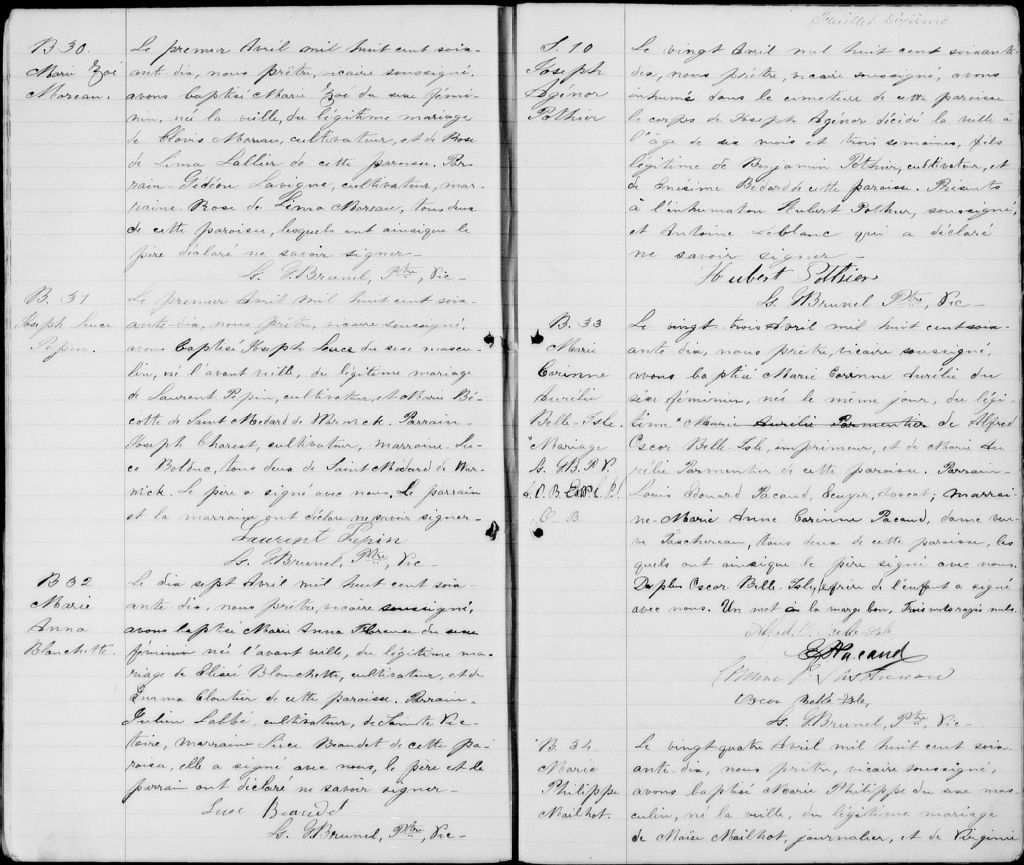 B 30.
Marie Zoé
Moreau.
Le premier Avril mil huit cent soix-
ante-dix, nous prêtre, vicaire soussigné,
avons baptisé Marie Zoé du sexe fémi-
nin, née la veille, du légitime mariage
de Clovis Moreau, cultivateur, et de Rose
de Lima Lallier de cette paroisse. Par-
rain Gédéon Lavigne, cultivateur, mar-
raine Rose de Lima Moreau, tous deux
de cette paroisse, lesquels ont ainsique le
père déclaré ne savoir signer-
L. G. Brunel, Ptre, Vic-
B. 31
Joseph Luce
Pepin.
Le premier Avril mil huit cent soix-
ante-dix, nous, prêtre, vicaire soussigné,
avons baptisé Joseph Luce du sexe mascu-
lin, né l'avant veille, du légitime mariage
de Laurent Pépin, cultivateur, et Marie Bé-
cotte de Saint Médard de Warwick. Parrain-
Joseph Charest, cultivateur, marraine Lu-
ce Bolduc, tous deux de Saint Médard de War-
wick. Le père a signé avec nous. Le parrain
et la marraine ont déclaré ne savoir signer-
Laurent Pepin
L. G. Brunel, Ptre, Vic-
B 32
Marie
Anna
Blanchette.
Le dix sept Avril mil huit cent soix-
ante-dix, nous prêtre, vicaire soussigné,
avons baptisé Marie Anna Florence du sexe
féminin née l'avant veille, du légitime ma-
riage de Elisée Blanchette, cultivateur, et de
Emma Cloutier de cette paroisse. Parrain-
Julien Labbé, cultivateur, de Sainte Vic-
toire, marraine Luce Beaudet de cette pa-
roisse, elle a signé avec nous, le père et le
parrain ont déclaré ne savoir signer-
Luce Beaudé
L. G. Brunel, Ptre, Vic-
Feuillet Dixième
S. 10
Joseph
Agénor
Pothier
Le vingt Avril mil huit cent soixante
dix, nous prêtre, vicaire soussigné, avons
inhumé dans le cimetière de cette paroisse
le corps de Joseph Agénor décédé la veille à
l'âge de six mois et trois semaines, fils
légitime de Benjamin Pothier, cultivateur, et
de Onésime Bédard de cette paroisse. Présents
à l'inhumation Hubert Pothier, soussigné,
et Antoine Leblanc qui a déclaré
ne savoir signer-
Hubert Pothier
L. G. Brunel Ptre, Vic-
B. 33
Marie
Corinne
Aurélie
Belle-Isle.
*Mariage
L. G. B. P. V.
O. B
Le vingt trois Avril mil huit cent soix-
ante dix, nous prêtre, vicaire soussigné,
avons baptisé Marie Corinne Aurélie du
sexe féminin, née le même jour, du légi-
time *Marie Aurélie Parmentier de Alfred
Oscar Belle-Isle, imprimeur, et de Marie Au-
rélie Parmentier de cette paroisse. Parrain-
Louis Edouard Pacaud, Ecuyer, Avocat; marrai-
ne- Marie Anne Corinne Pacaud, dame veu-
ve Taschereau, tous deux de cette paroisse, les
quels ont ainsique le père signé avec nous.
De plus Oscar Belle-Isle, frère de l'enfant a signé
avec nous. Un mot à la marge bon, Trois mots rayés nuls.
Alfred O. Belle-Isle
E L Pacaud
Oscar Belle-Isle,
L. G. Brunel, Ptre, Vic-
B. 34.
Marie
Philippe
Mailhot.
Le vingt quatre Avril mil huit cent soix-
ante-dix, nous prêtre, vicaire soussigné,
avons baptisé Marie Philippe du sexe mas-
culin, né la veille, du légitime mariage
de Moise Mailhot, journalier, et de Virginie